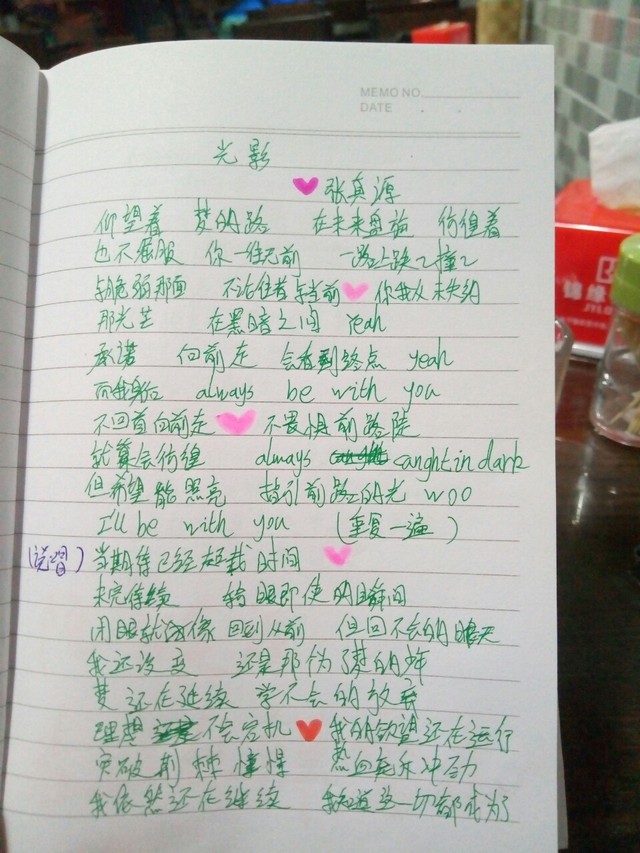 MEMO NO.
DATE
光影
张真源
仰望着 梦的路 在未来盘旋 彷徨着
也不屈服 你一往无前 一路上跌跌撞撞
与脆弱那面 不论往昔与当前 你我从未失约
那光芒 在黑暗之间 Yeah
承诺 向前走 会看到终点 yeah
而我身后 always be with you
不回首向前走 不畏惧前路陡
就算会彷徨 always caught in dark
但希望能照亮 指引前路的光 woo
I'll be with you (重复一遍)
(说唱) 当期待已经 超载 时间
未完待续 转眼即使的瞬间
闭眼就像 回到从前 但回不去的昨天
我还没变 还是那为了梦的
梦还在延续 学不会的放弃
理想 不会宕机 我的欲望还在运行
突破荆棘憧憬 热血 冲动
我依然还在继续 我知道这一切都成为了
锦缘